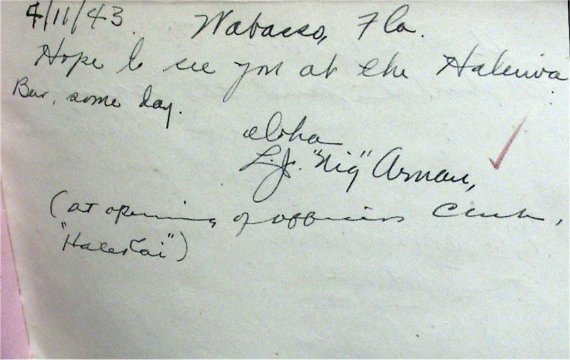 4/11/43. Wabasso, Fla.
Hope to see you at the Haleiwa
Bar, some day.
aloha
L.J. "Nig" Arnau,
(at opening of officers Club,
"Halekai")